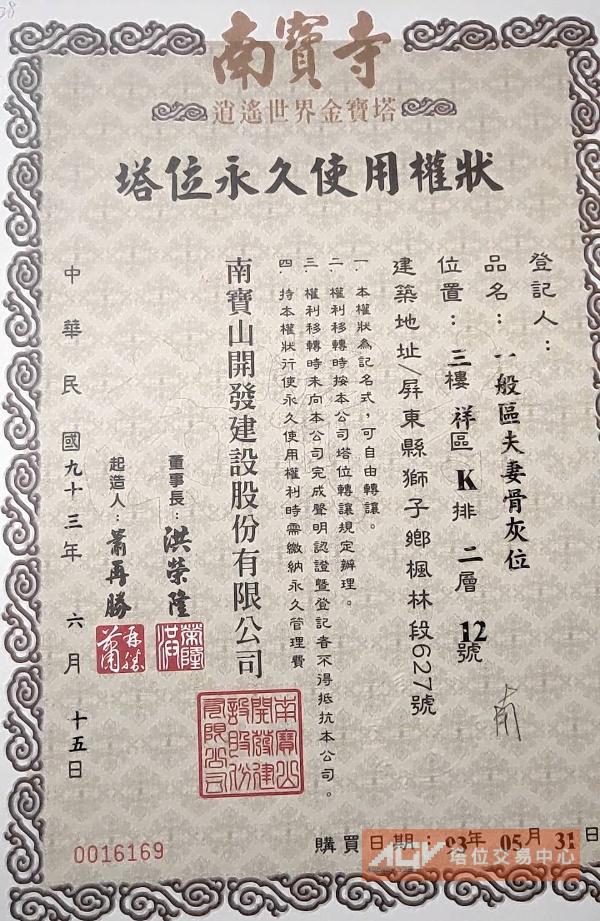 南寶寺
逍遙世界金寶塔
塔位永久使用權狀
登記人：
品名：一般區夫妻骨灰位
位置：三樓祥區K排二層12號
建築地址/屏東縣獅子鄉楓林段627號
一.本權狀為記名式，可自由轉讓。
二.權利移轉時按本公司塔位轉讓規定辦理。
三.權利移轉時未向本公司完成聲明認證暨登記者不得抵抗本公司。
四.持本權狀行使永久使用權利時需繳納永久管理費
南寶山開發建設股份有限公司
董事長：洪榮隆
起造人：蕭再勝
中華民國九十三年六月十五日
南寶山開發建設股份有限公司
購買日期：93年05月31日
0016169
塔位交易中心